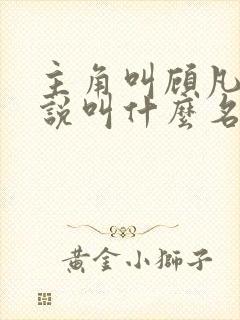 主角叫顧凡
說叫什麼名
黃金小獅子